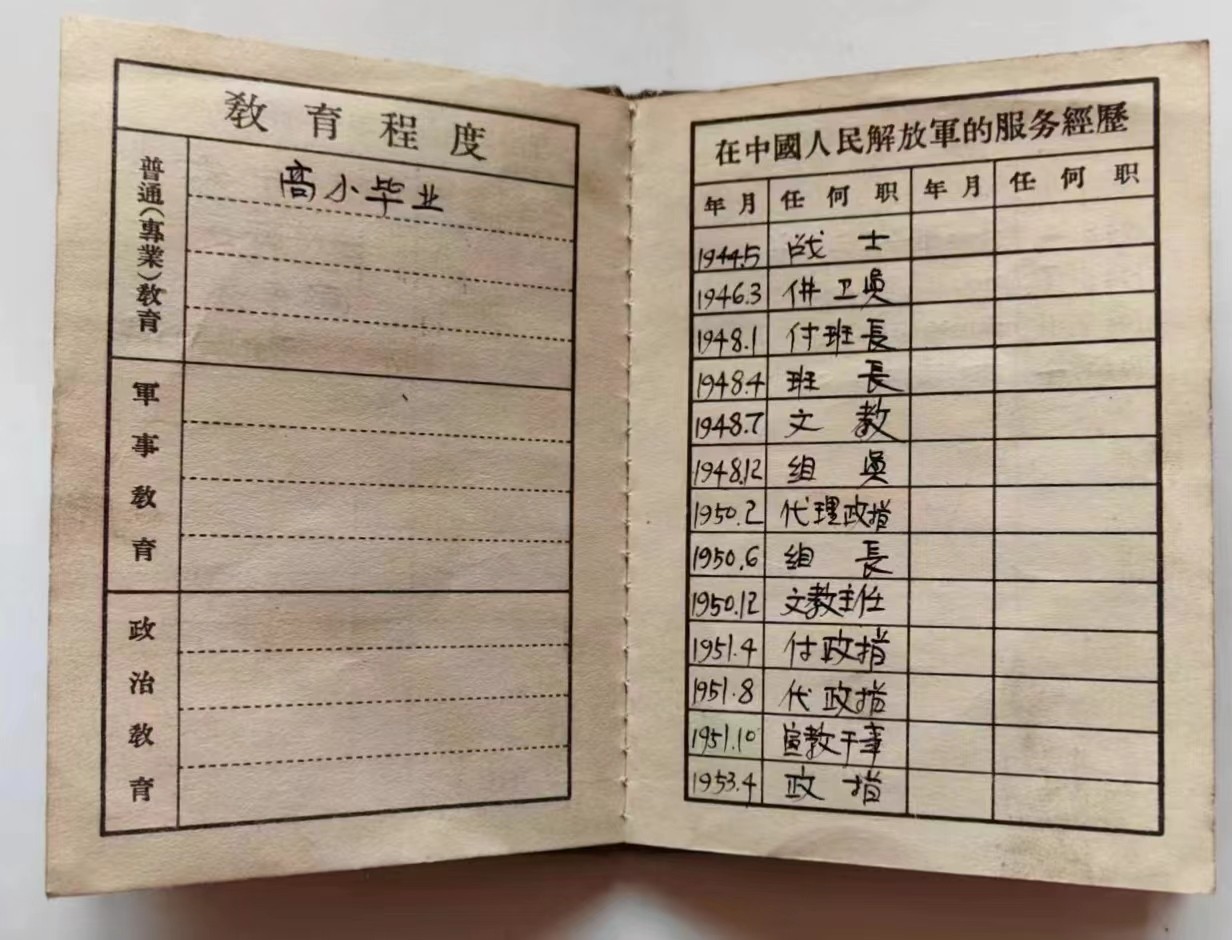 教育程度
普通(專業)教育
高小毕业
軍事教育
政治教育
在中國人民解放軍的服务經歷
年月 任何职 年月 任何职
1944.5 战士
1946.3 供卫员
1948.1 付班長
1948.4 班長
1948.7 文教
1948.12 组員
1950.2 代理政指
1950.6 组長
1950.12 文教主任
1951.4 付政指
1951.8 代政指
1951.10 宣教干事
1953.4 政指